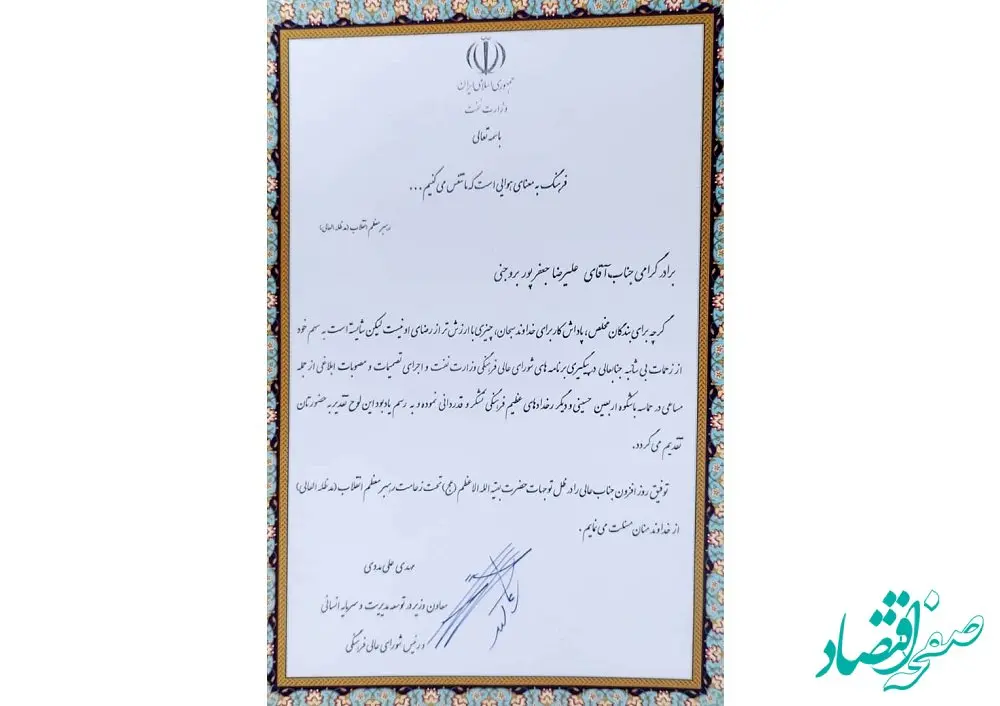 جمهوری اسلامی ایران
وزارت نفت
باسمه تعالی
فرهنگ به معنای هوایی است که ما تنفس می کنیم ...
رهبر معظم انقلاب (مدظله العالی)
برادر گرامی جناب آقای علیرضا جعفرپور بروجنی
گرچه برای بندگان مخلص، پاداش کار برای خداوند سبحان، چیزی با ارزش تر از رضای او نیست لیکن شایسته است به سهم خود
از زحمات بی شائبه جنابعالی در پیگیری برنامه های شورای عالی فرهنگی وزارت نفت و اجرای تصمیمات و مصوبات ابلاغی از جمله
مساعی در حماسه باشکوه اربعین حسینی و دیگر رخدادهای عظیم فرهنگی تشکر و قدردانی نموده و به رسم یادبود این لوح تقدیر به حضورتان
تقدیم می گردد.
توفیق روز افزون جناب عالی را در ظل توجهات حضرت بقیه الله الاعظم (عج) تحت زعامت رهبر معظم انقلاب (مدظله العالی)
از خداوند منان مسئلت می نمایم.
مهدی علی مددی
معاون وزیر در توسعه مدیریت و سرمایه انسانی
و رئیس شورای عالی فرهنگی
صفحه اقتصاد